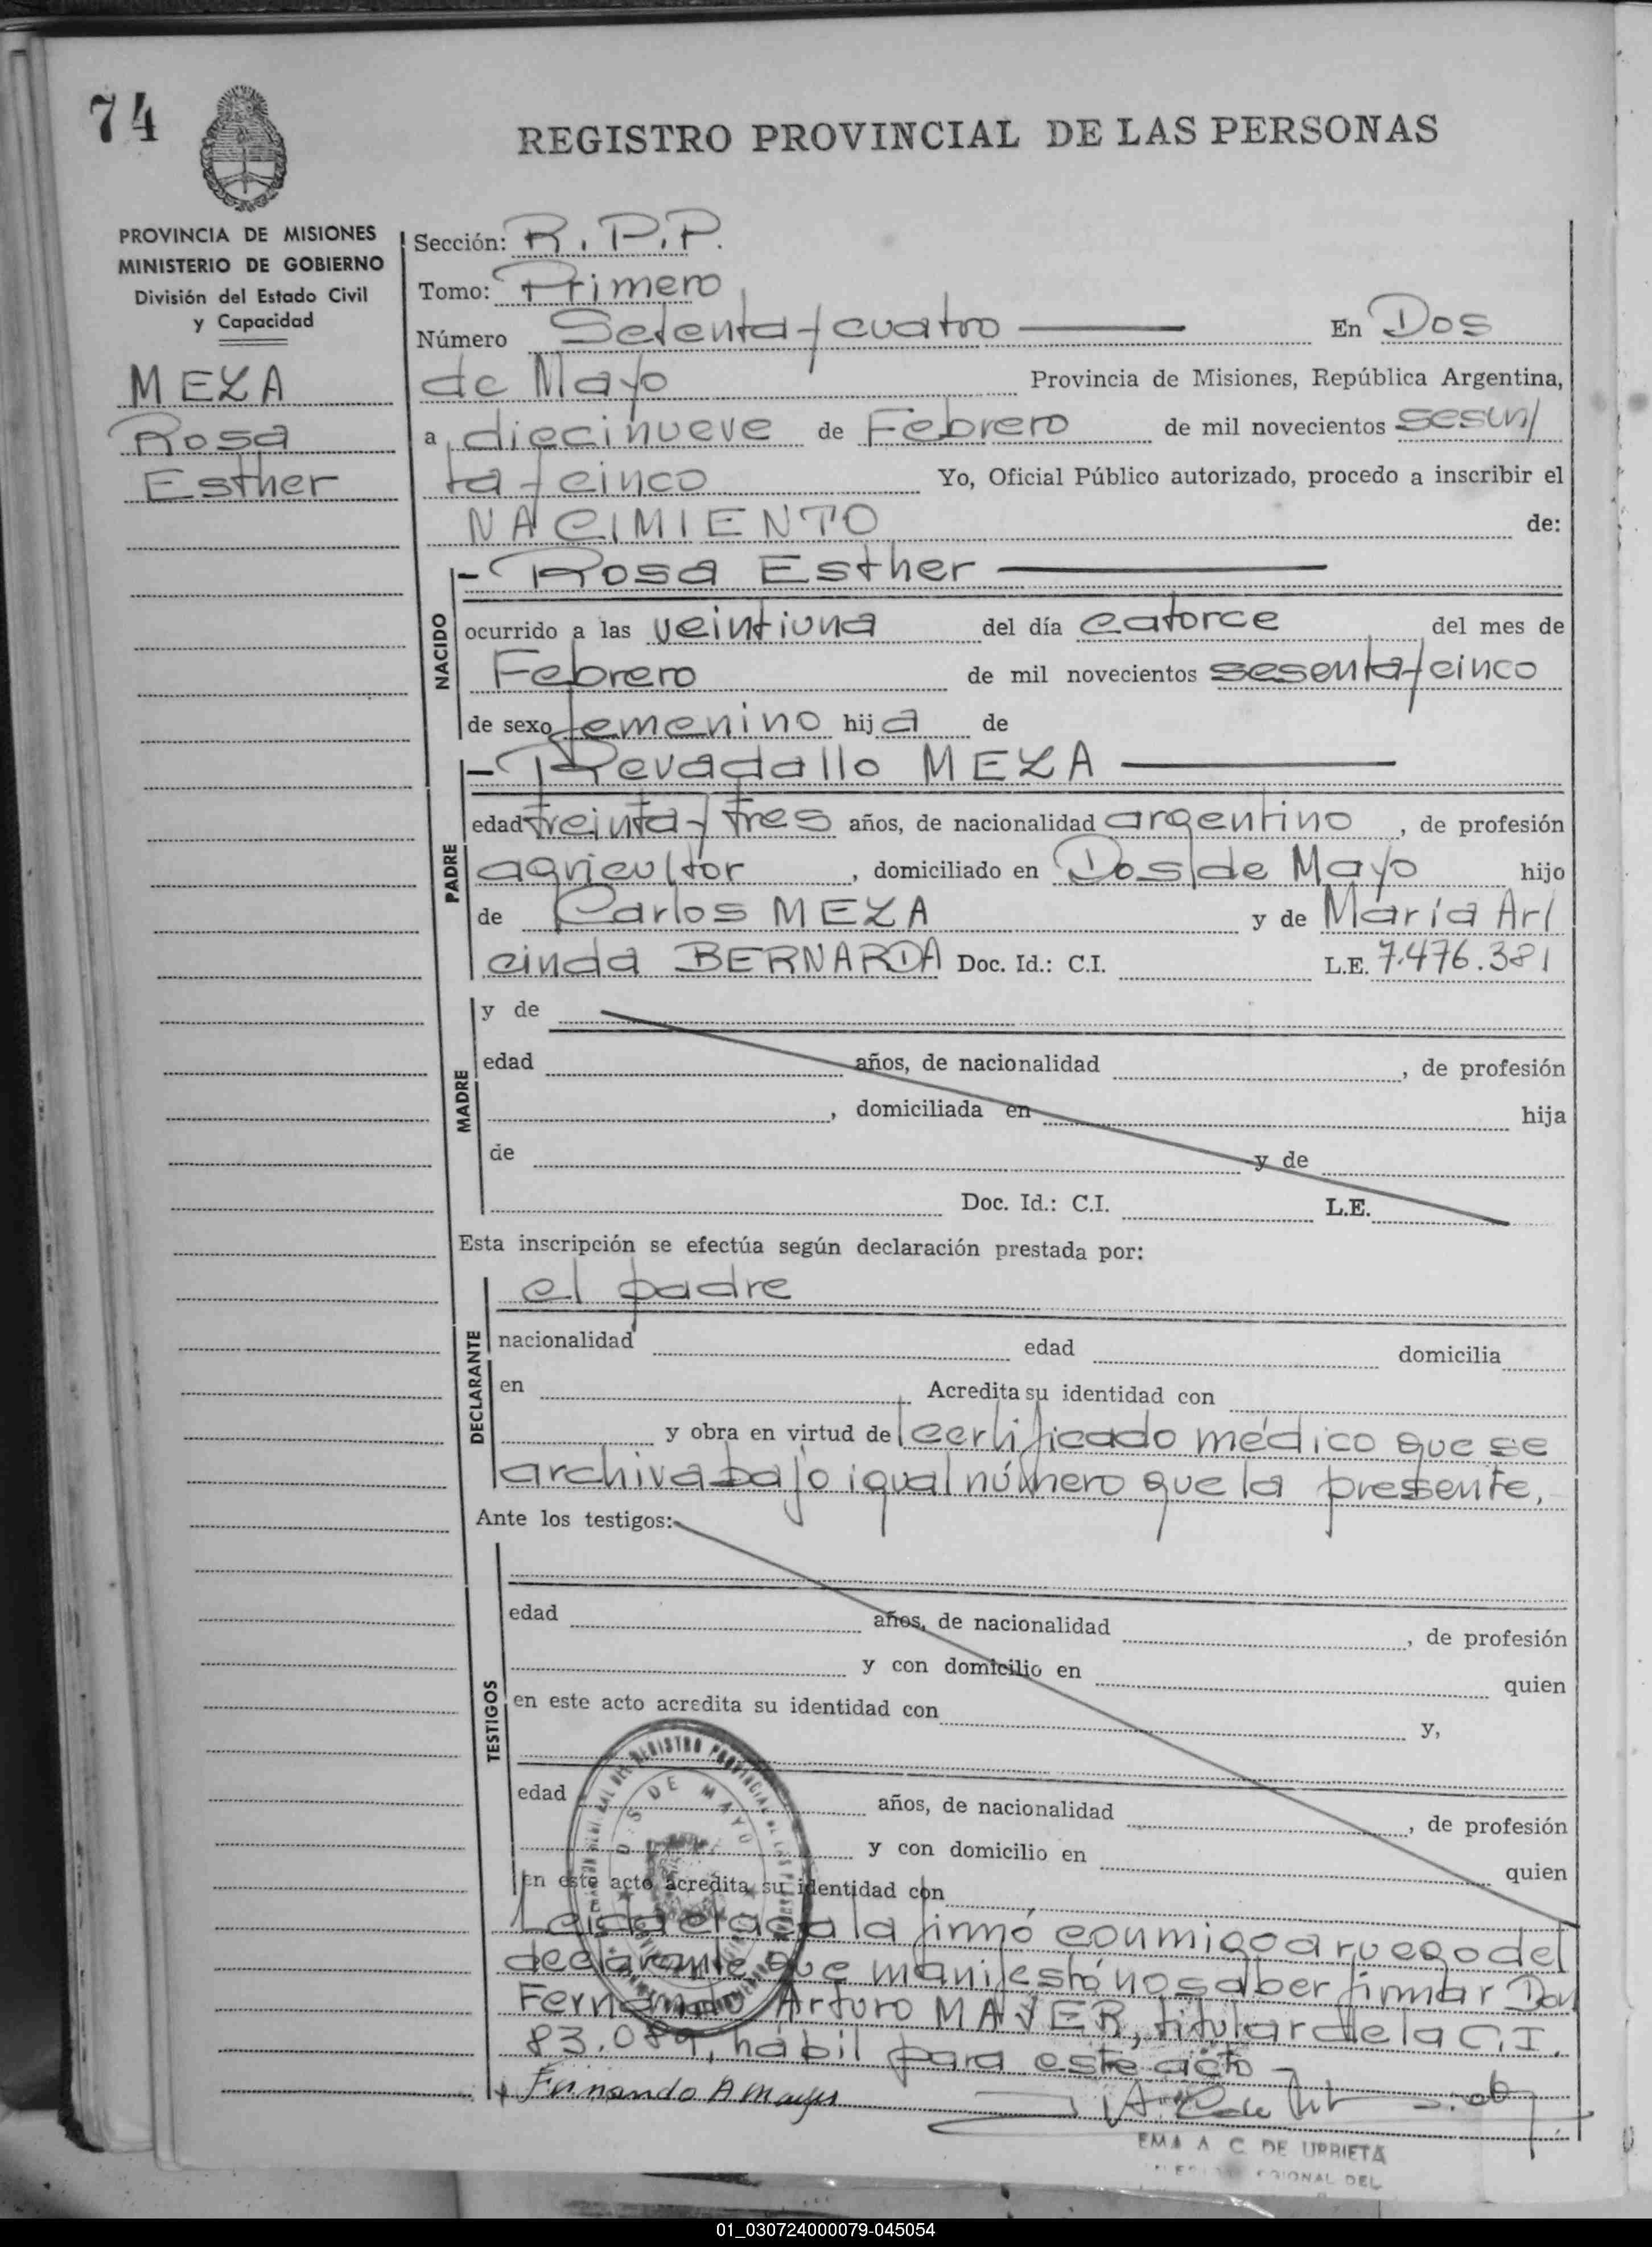 74
REGISTRO PROVINCIAL DE LAS PERSONAS
PROVINCIA DE MISIONES
MINISTERIO DE GOBIERNO
División del Estado Civil
y Capacidad
MEZA
Rosa
Esther
Sección: R.P.P.
Tomo: Primero
Número Setenta y cuatro En Dos
de Mayo Provincia de Misiones, República Argentina,
a diecinueve de Febrero de mil novecientos sesen/
ta y cinco Yo, Oficial Público autorizado, procedo a inscribir el
NACIMIENTO de:
NACIDO
- Rosa Esther
ocurrido a las veintiuna del día catorce del mes de
Febrero de mil novecientos sesenta y cinco
de sexo femenino hija de
PADRE
- Revadallo MEZA
edad treinta y tres años, de nacionalidad argentino, de profesión
agricultor, domiciliado en Dos de Mayo hijo
de Carlos MEZA y de María Ar/
cinda BERNARDA Doc. Id.: C.I. L.E. 7.476.381
MADRE
y de
edad años, de nacionalidad , de profesión
, domiciliada en hija
de y de
Doc. Id.: C.I. L.E.
Esta inscripción se efectúa según declaración prestada por:
DECLARANTE
el padre
nacionalidad edad domicilia
en Acredita su identidad con
y obra en virtud de certificado médico que se
archiva bajo igual número que la presente.
Ante los testigos:
TESTIGOS
edad años, de nacionalidad , de profesión
y con domicilio en quien
en este acto acredita su identidad con y,
edad años, de nacionalidad , de profesión
y con domicilio en quien
en este acto acredita su identidad con
Leida el acta la firmó conmigo a ruego del
declarante que manifestó no saber firmar Don
Fernando Arturo MAYER, titular de la C.I.
83.089, hábil para este acto
Fernando A Mayer
EMA A C DE URRIETA
REGIONAL DEL
REGISTRO PROVINCIAL DE LAS
DOS DE MAYO
01_030724000079-045054